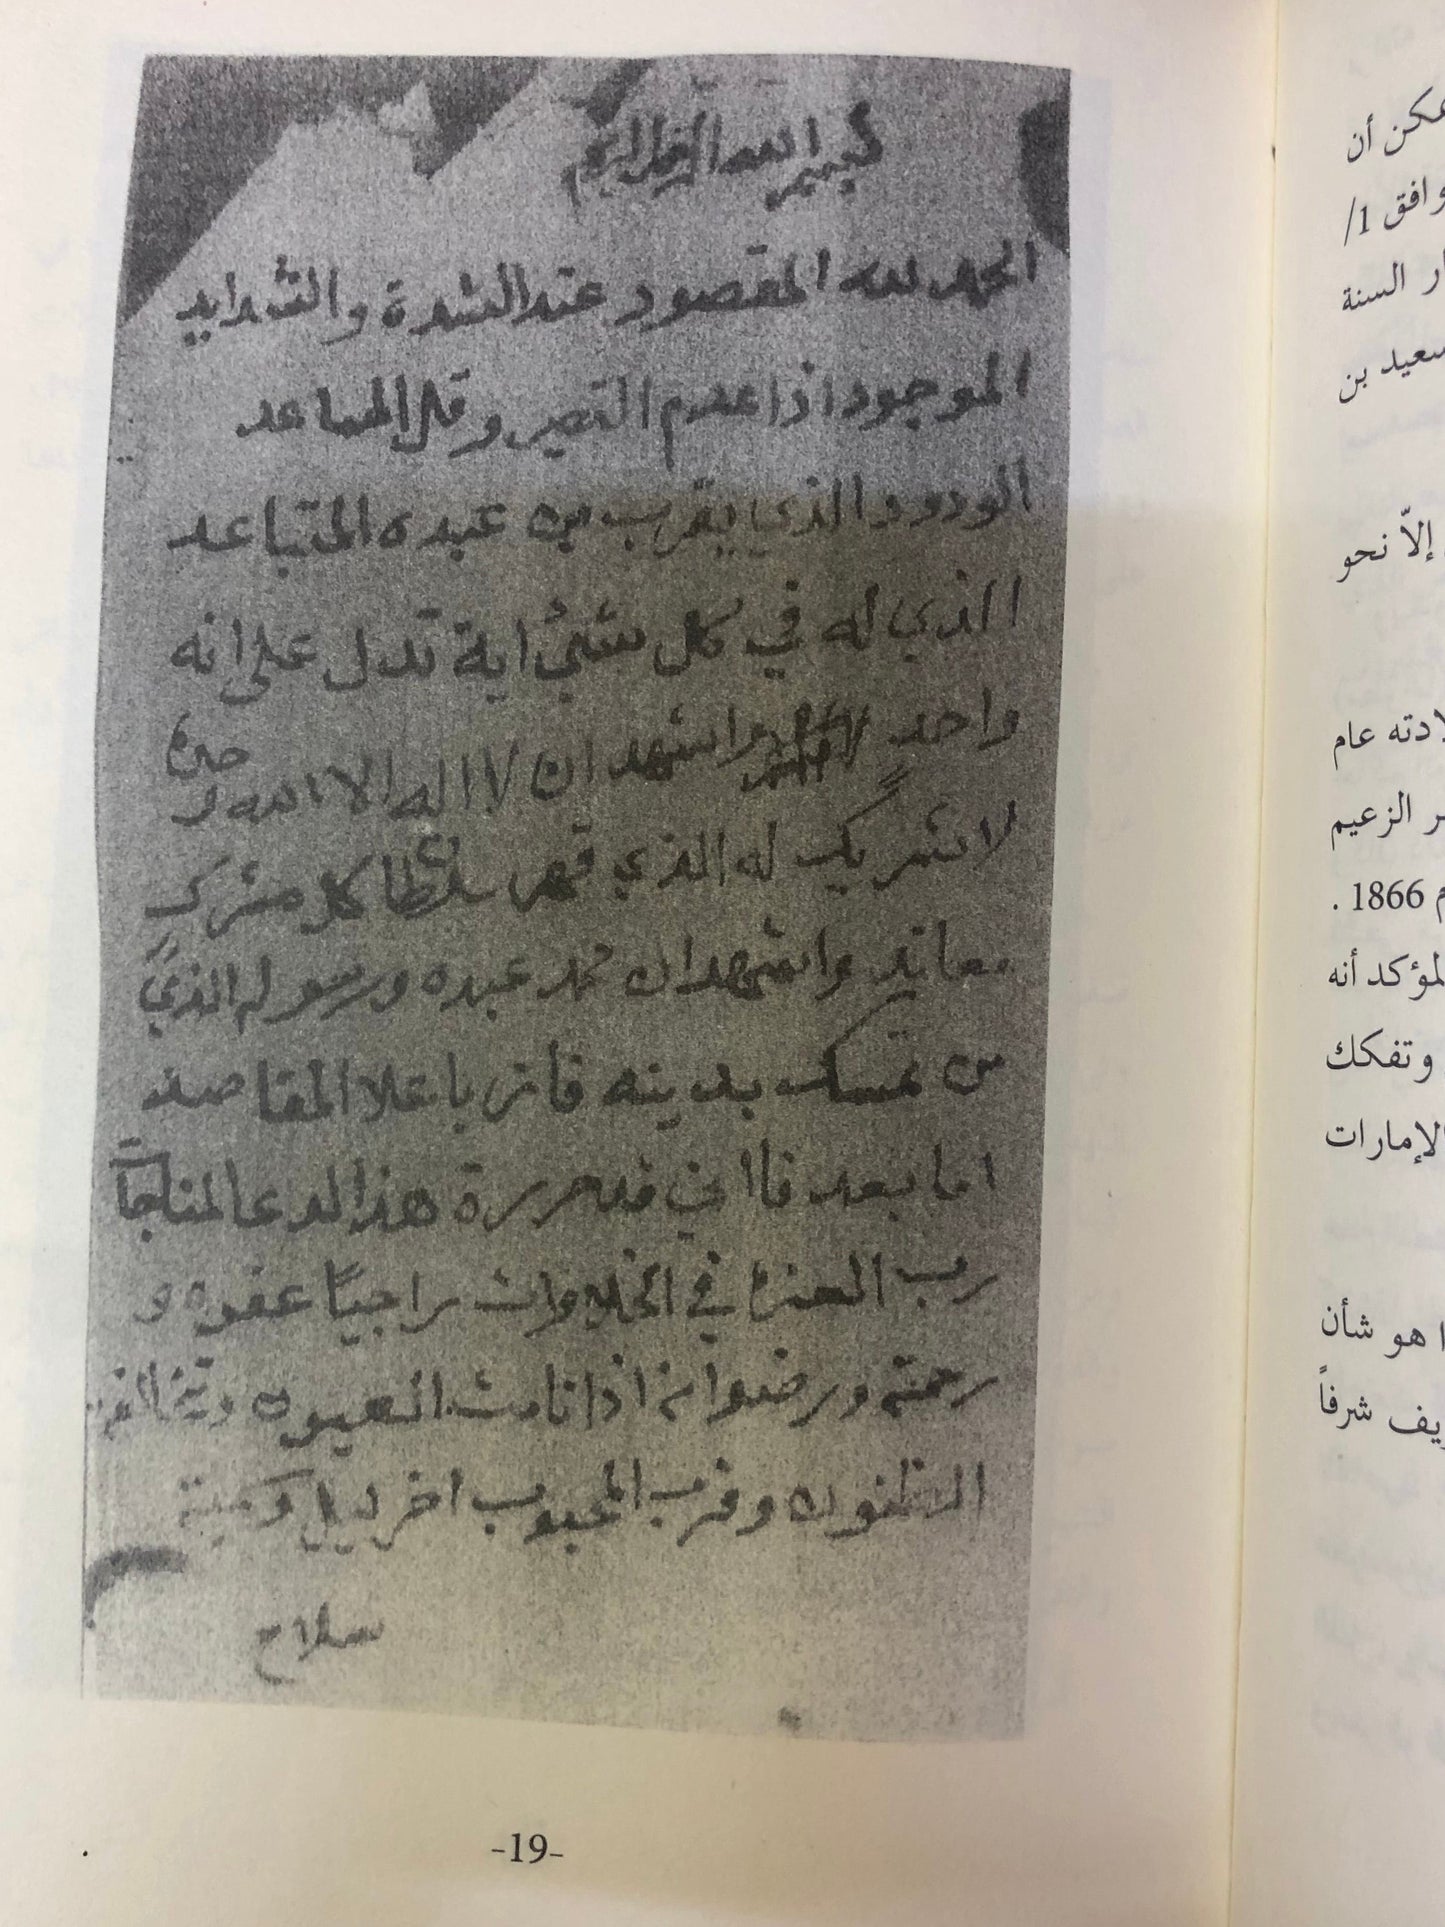 بسم الله الرحمن الرحيم
الحمد لله المقصود عند الشدة والشدايد
الموجود اذا عدم النصير وقل المساعد
الودود الذي يقرب من عبده المتباعد
الذي له في كل شئ اية تدل على انه
واحد واشهد ان لا اله الا الله وحده
لا شريك له الذي قهر سلطا كل مشرك
معاند واشهد ان محمد عبده ورسوله الذي
من تمسك بدينه فاز باعلا المقاصد
اما بعد فااني قد حررة هذا لدعا لمناجاة
رب العزة في الخلوات راجيًا عفوه و
رحمته ورضوانه اذا نامت العيون
الظنون وقرب المحبوب اخر ليل
سلاح
-19-
عكن أن
وافق 1/
ار السنة
سعيد بن
إلاّ نحو
لادته عام
ر الزعيم
م 1866 .
لمؤكد أنه
وتفكك
الإمارات
ا هو شأن
يف شرفاً